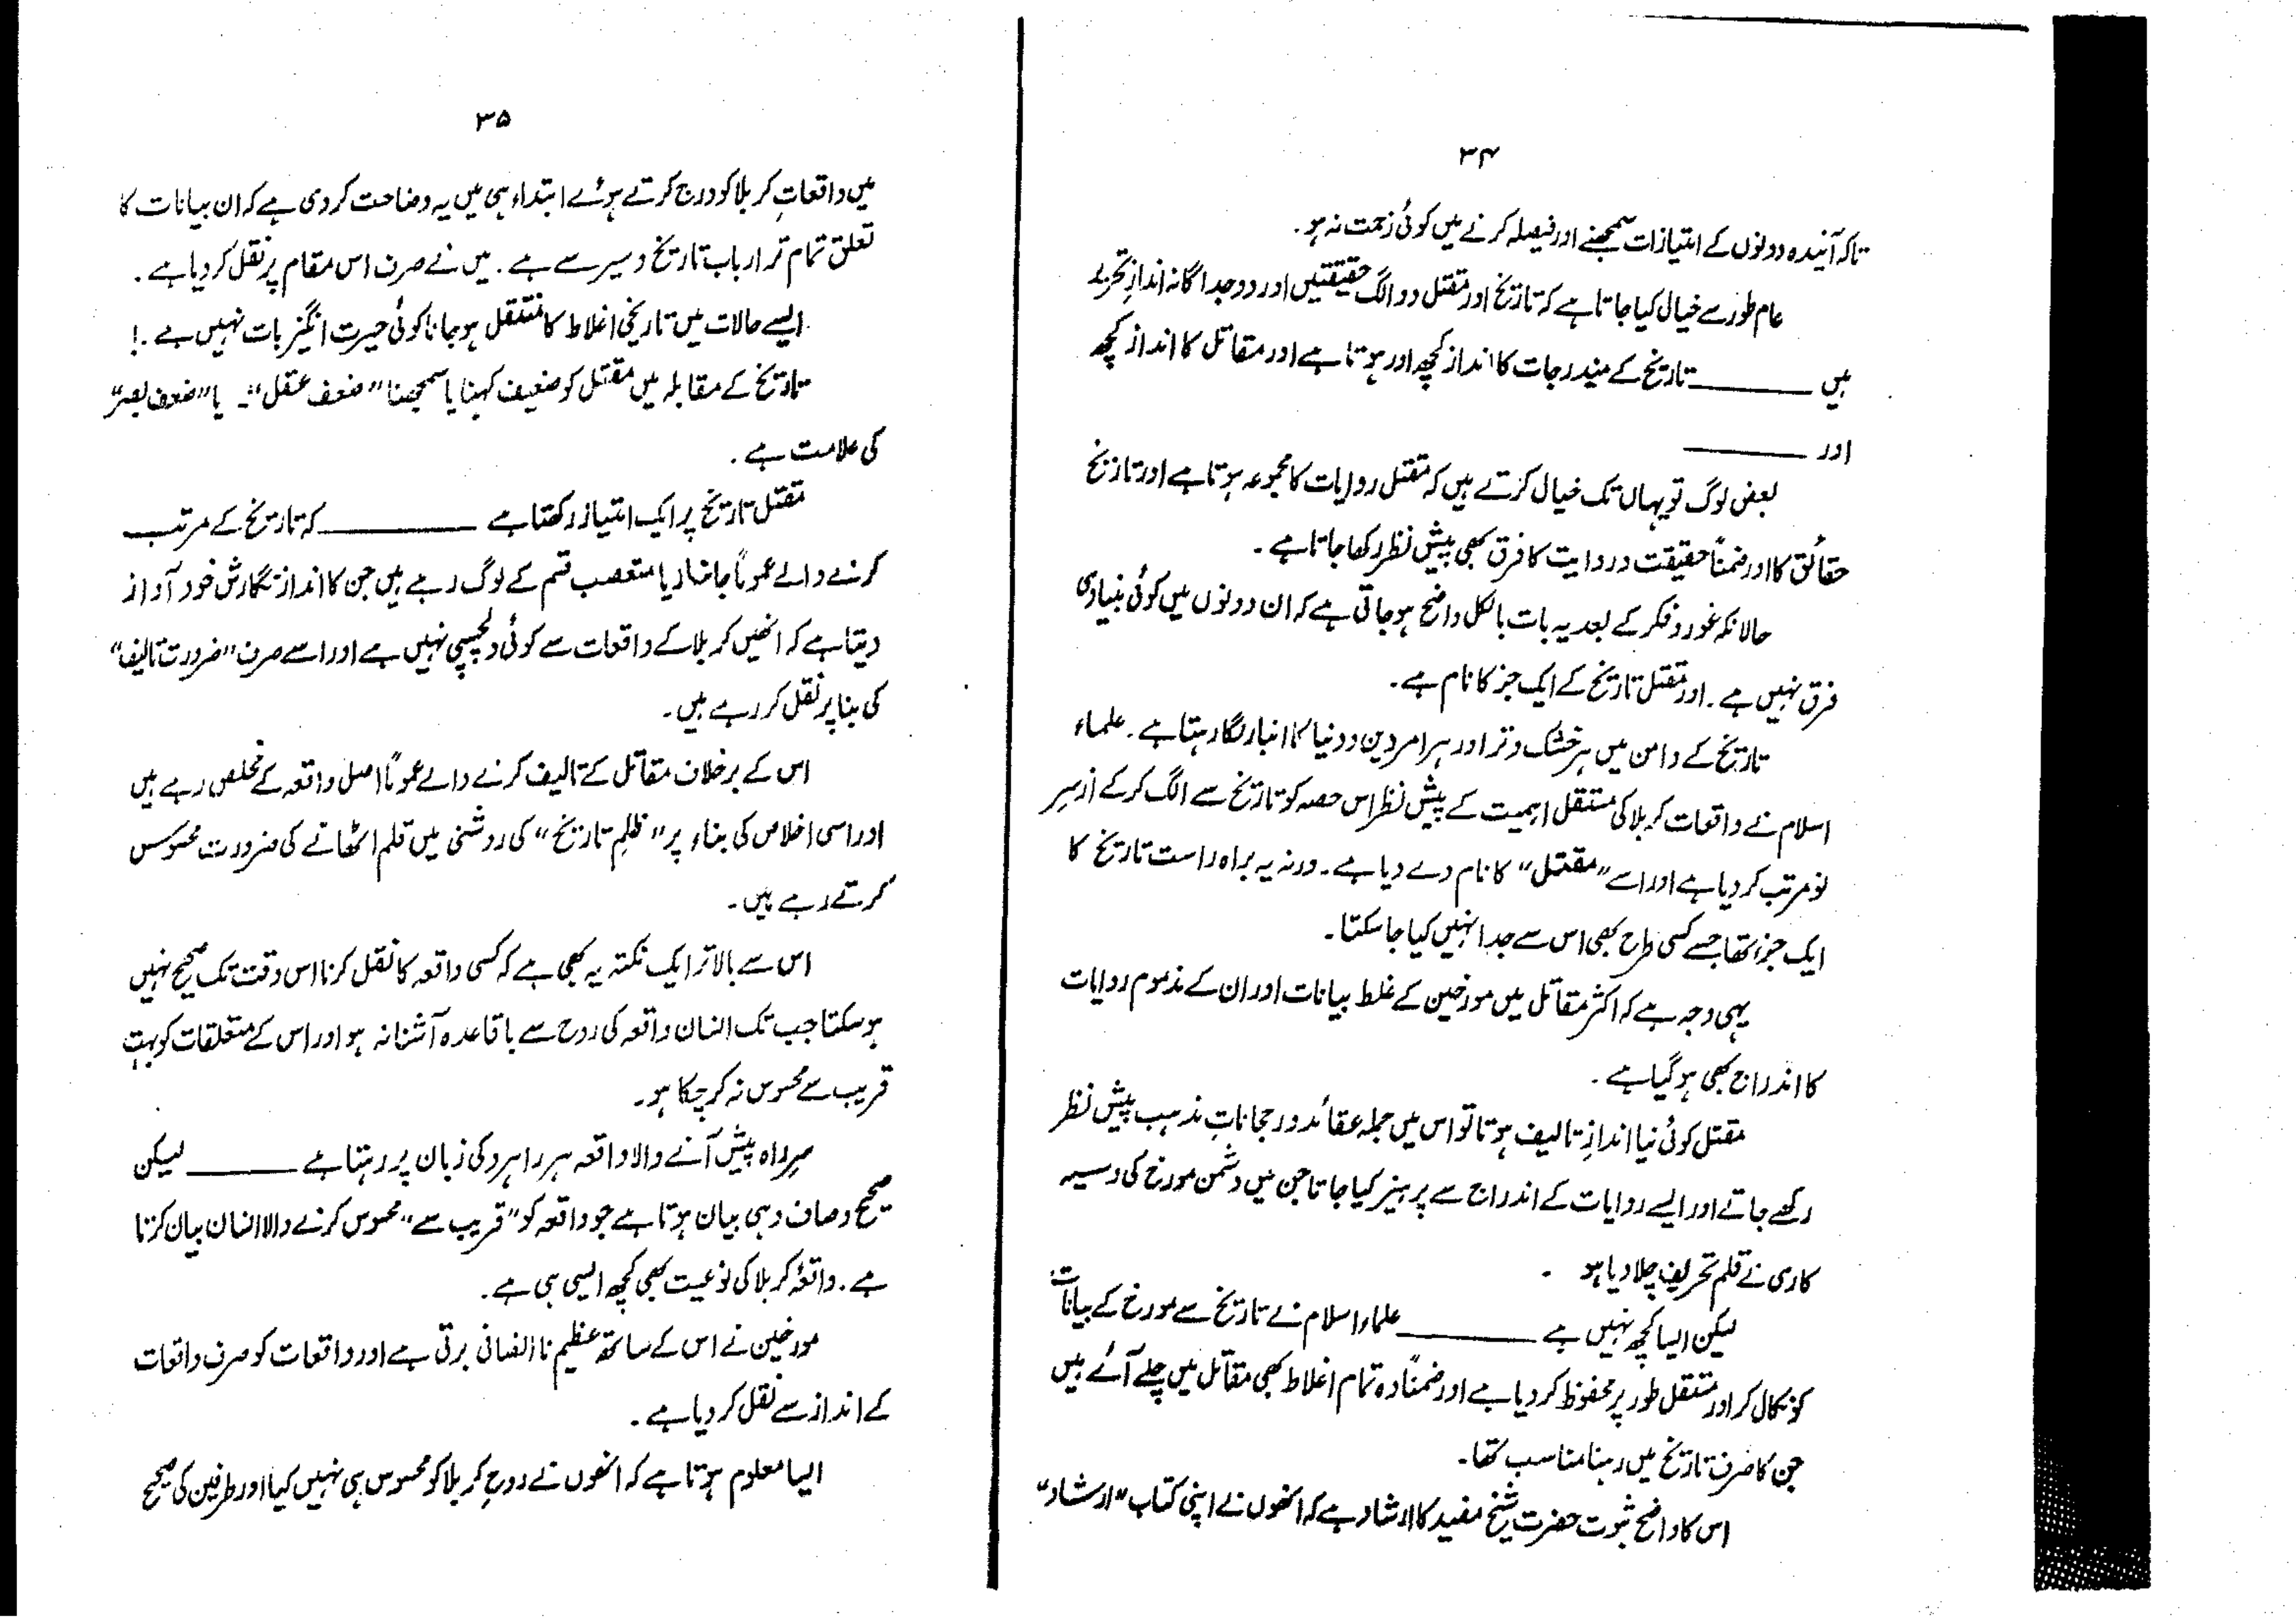 ۳۴
تاکہ آئندہ دونوں کے امتیازات سمجھنے اور فیصلہ کرنے میں کوئی زحمت نہ ہو۔
عام طور سے خیال کیا جاتا ہے کہ تاریخ اور مقتل دو الگ حقیقتیں اور دو جداگانہ اندازِ تحریر
ہیں ــــــــــ تاریخ کے مندرجات کا انداز کچھ اور ہوتا ہے اور مقاتل کا انداز کچھ
اور ــــــــــ
بعض لوگ تو یہاں تک خیال کرتے ہیں کہ مقتل روایات کا مجموعہ ہوتا ہے اور تاریخ
حقائق کا اور ضمناً حقیقت و روایت کا فرق بھی پیش نظر رکھا جاتا ہے۔
حالانکہ غور و فکر کے بعد یہ بات بالکل واضح ہو جاتی ہے کہ ان دونوں میں کوئی بنیادی
فرق نہیں ہے۔ اور مقتل تاریخ کے ایک جز کا نام ہے۔
تاریخ کے دامن میں ہر خشک و تر اور ہر امر دین و دنیا کا انبار لگا رہتا ہے۔ علماء
اسلام نے واقعات کربلا کی مستقل اہمیت کے پیش نظر اس حصہ کو تاریخ سے الگ کرکے از سرِ
نو مرتب کر دیا ہے اور اسے "مقتل" کا نام دے دیا ہے۔ ورنہ یہ براہ راست تاریخ کا
ایک جز تھا جسے کسی طرح بھی اس سے جدا نہیں کیا جا سکتا۔
یہی وجہ ہے کہ اکثر مقاتل میں مورخین کے غلط بیانات اور ان کے مذموم روایات
کا اندراج بھی ہو گیا ہے۔
مقتل کوئی نیا اندازِ تالیف ہوتا تو اس میں جملہ عقائد و رجحاناتِ مذہب پیش نظر
رکھے جاتے اور ایسے روایات کے اندراج سے پرہیز کیا جاتا جن میں دشمن مورخ کی دسیسہ
کاری نے قلم تحریف چلا دیا ہو۔
لیکن ایسا کچھ نہیں ہے ــــــــــ علماء اسلام نے تاریخ سے مورخ کے بیانات
کو نکال کر اور مستقل طور پر محفوظ کر دیا ہے اور ضمناً وہ تمام اغلاط بھی مقاتل میں چلے آئے ہیں
جن کا صرف تاریخ میں رہنا مناسب تھا۔
اس کا واضح ثبوت حضرت شیخ مفید کا ارشاد ہے کہ انھوں نے اپنی کتاب "ارشاد"
۳۵
میں واقعاتِ کربلا کو درج کرتے ہوئے ابتداء ہی میں یہ وضاحت کر دی ہے کہ ان بیانات کا
تعلق تمام تر ارباب تاریخ و سیر سے ہے۔ میں نے صرف اس مقام پر نقل کر دیا ہے۔
ایسے حالات میں تاریخی اغلاط کا منتقل ہو جانا کوئی حیرت انگیز بات نہیں ہے۔!
تاریخ کے مقابلہ میں مقتل کو ضعیف کہنا یا سمجھنا "ضعف عقل"۔ یا "ضعف بصر"
کی علامت ہے۔
مقتل تاریخ پر ایک امتیاز رکھتا ہے ــــــــــ کہ تاریخ کے مرتب
کرنے والے عموماً جانبدار یا متعصب قسم کے لوگ رہے ہیں جن کا انداز نگارش خود آواز
دیتا ہے کہ انھیں کربلا کے واقعات سے کوئی دلچسپی نہیں ہے اور اسے صرف "ضرورت تالیف"
کی بنا پر نقل کر رہے ہیں۔
اس کے برخلاف مقاتل کے تالیف کرنے والے عموماً اصل واقعہ کے مخلص رہے ہیں
اور اسی اخلاص کی بناء پر "ظلمِ تاریخ" کی روشنی میں قلم اٹھانے کی ضرورت محسوس
کرتے رہے ہیں۔
اس سے بالاتر ایک نکتہ یہ بھی ہے کہ کسی واقعہ کا نقل کرنا اس وقت تک صحیح نہیں
ہو سکتا جب تک انسان واقعہ کی روح سے باقاعدہ آشنا نہ ہو اور اس کے متعلقات کو بہت
قریب سے محسوس نہ کر چکا ہو۔
سرِ راہ پیش آنے والا واقعہ ہر راہرو کی زبان پر رہتا ہے ــــــــــ لیکن
صحیح و صاف وہی بیان ہوتا ہے جو واقعہ کو "قریب سے" محسوس کرنے والا انسان بیان کرتا
ہے۔ واقعۂ کربلا کی نوعیت بھی کچھ ایسی ہی ہے۔
مورخین نے اس کے ساتھ عظیم ناانصافی برتی ہے اور واقعات کو صرف واقعات
کے انداز سے نقل کر دیا ہے۔
ایسا معلوم ہوتا ہے کہ انھوں نے روحِ کربلا کو محسوس ہی نہیں کیا اور طرفین کی صحیح